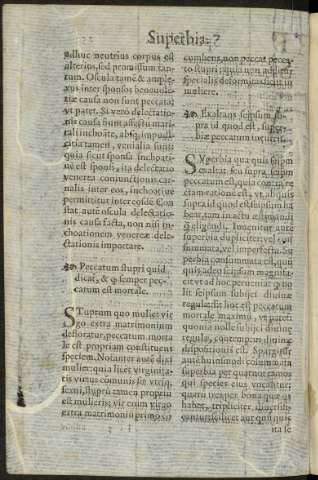 Superbia.
adhuc neutrius corpus est
alterius, sed promissum tan
tum. Oscula tamē & ample
xus inter sponsos beneuolē
tiæ causa non sunt peccata;
vt patet. Si verò delectatio
nis causa fiunt affectu mari
tali inchoāte, absq; impudi
citia tamen, venialia sunt:
quia sicut sponsa inchoati
uè est sponsi, ita delectatio
venerea coniunctionis car
nalis inter eos, inchoatiuè
permittitur inter eosdē. Con
stat autē oscula delectatio
nis causa facta, non nisi in
choationem venereæ dele
ctationis importare.
Peccatum stupri quid
dicat, & q̃ semper pec
catum est mortale.
STuprum quo mulier vir
go extra matrimonium
defloratur, peccatum morta
le est propriam constituens
speciem. Notanter autē dixi
mulier: quia licet virginita
tis virtus cōmunis sit vtriq;
sexui, stuprū tamen propriū
est mulieris: vir enim virgo
extra matrimoniū primò
cumbens, non peccat pecca
to stupri: quia non adest
specialis deformitas sicut in
muliere.
Exaltans seipsum su
pra id quod est, super
biæ peccatum incurrit.
SVperbia qua quis seipsū
exaltat seu supra seipsum
peccatum est, quia contra re
ctam rationē est, vt aliquis
supra id quod est seipsum ha
beat, tam in actu
eligendi. Inuenitur autē
superbia dupliciter: vel con
summata, vel imperfecta. Su
perbia consummata est, qua
quis adeò seipsum magnifa
cit vt ad hoc perueniat quod
lit seipsum subijci diuinæ
regulæ: sic hoc est peccatum
mortale maximū, vt pateti
quonia nolle subijci diuinæ
regulæ, contemptus diuinæ
dispositionis est. Spargitur
autē huiusmodi consummata
superbia per quatuor ramos
qui species eius vocātur:
quorū
habet, tripliciter
ita se